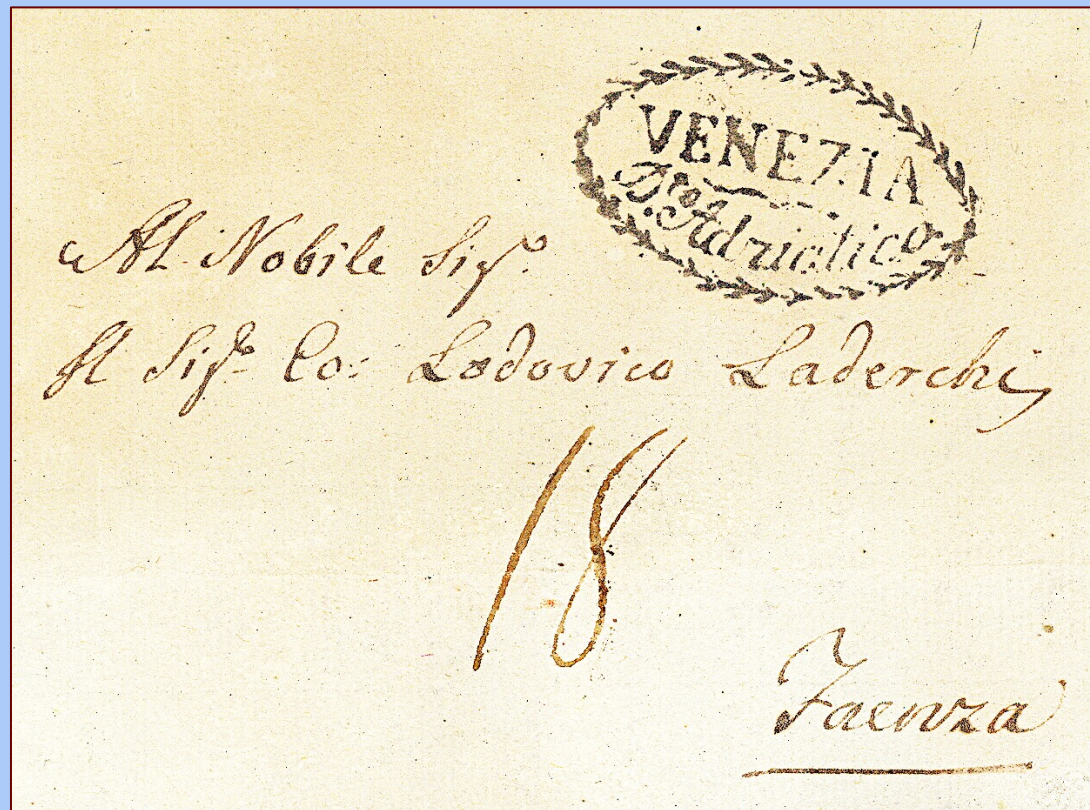 VENEZIA
D.to Adriatico
Al Nobile Sig.o
Il Sig.r Co: Lodovico Laderchi
18
Faenza